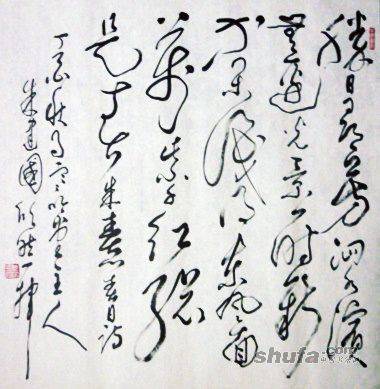 勝日尋芳泗水濱
無邊光景一時新
等閒識得東風面
萬紫千紅總
是春 朱熹春日詩
丁亥秋月 主人
朱建國欣然一揮
shufa.com